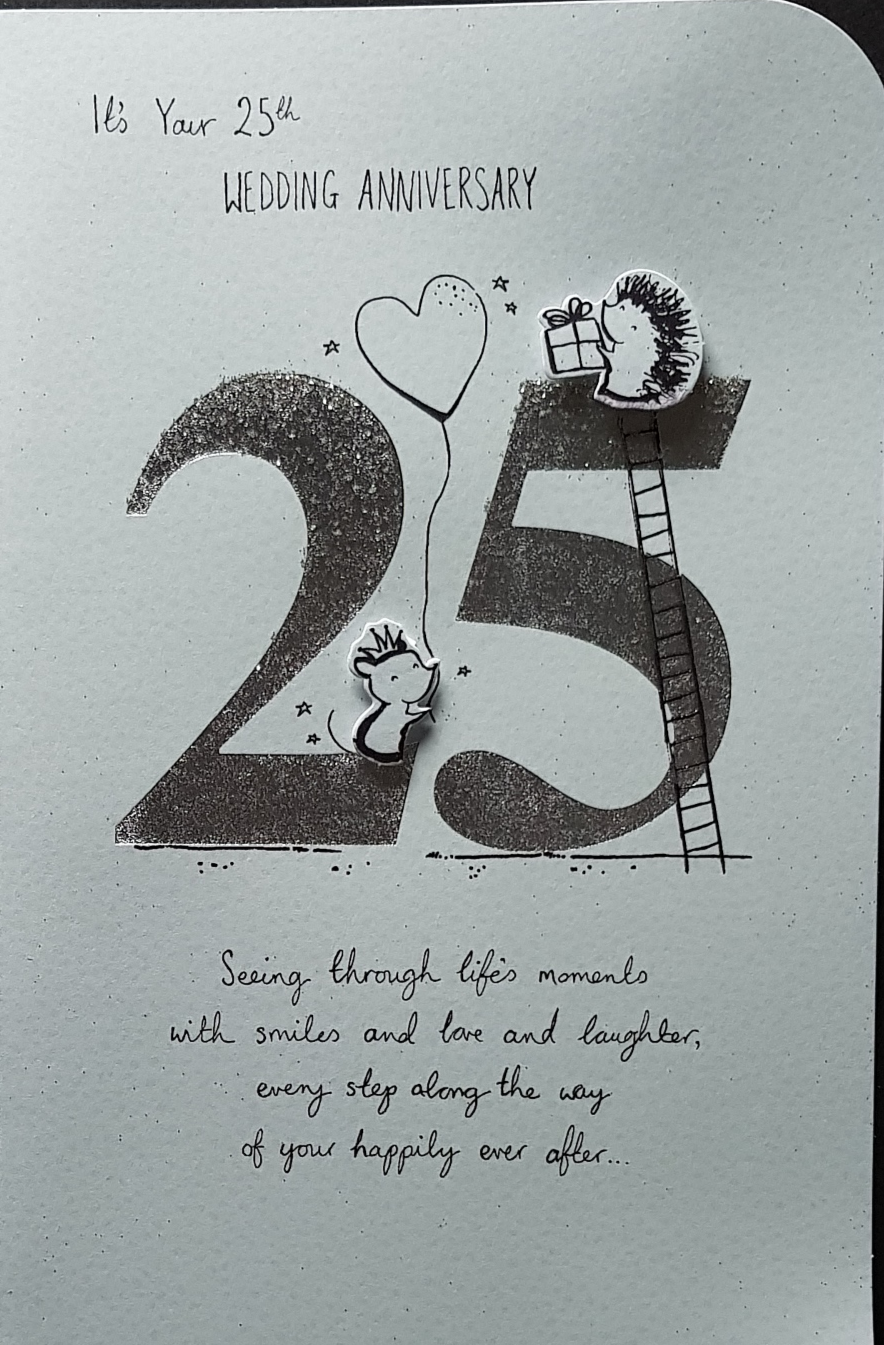 It's Your 25th
WEDDING ANNIVERSARY
25
Seeing through life's moments
with smiles and love and laughter,
every step along the way
of your happily ever after...